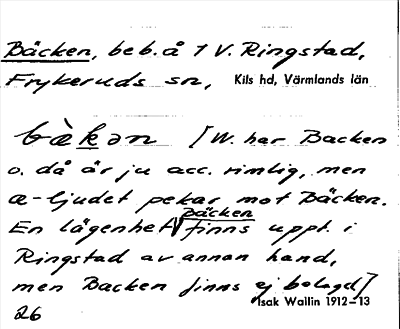 Bäcken, beb. å 1 V. Ringstad,
Frykeruds sn, Kils hd, Värmlands län
bὲkən [W. har Backen
o. då är ju acc. rimlig, men
æ-ljudet pekar mot Bäcken.
En lägenhet Bäcken finns uppt. i
Ringstad av annan hand,
men Backen finns ej belagd]
Isak Wallin 1912-13
26